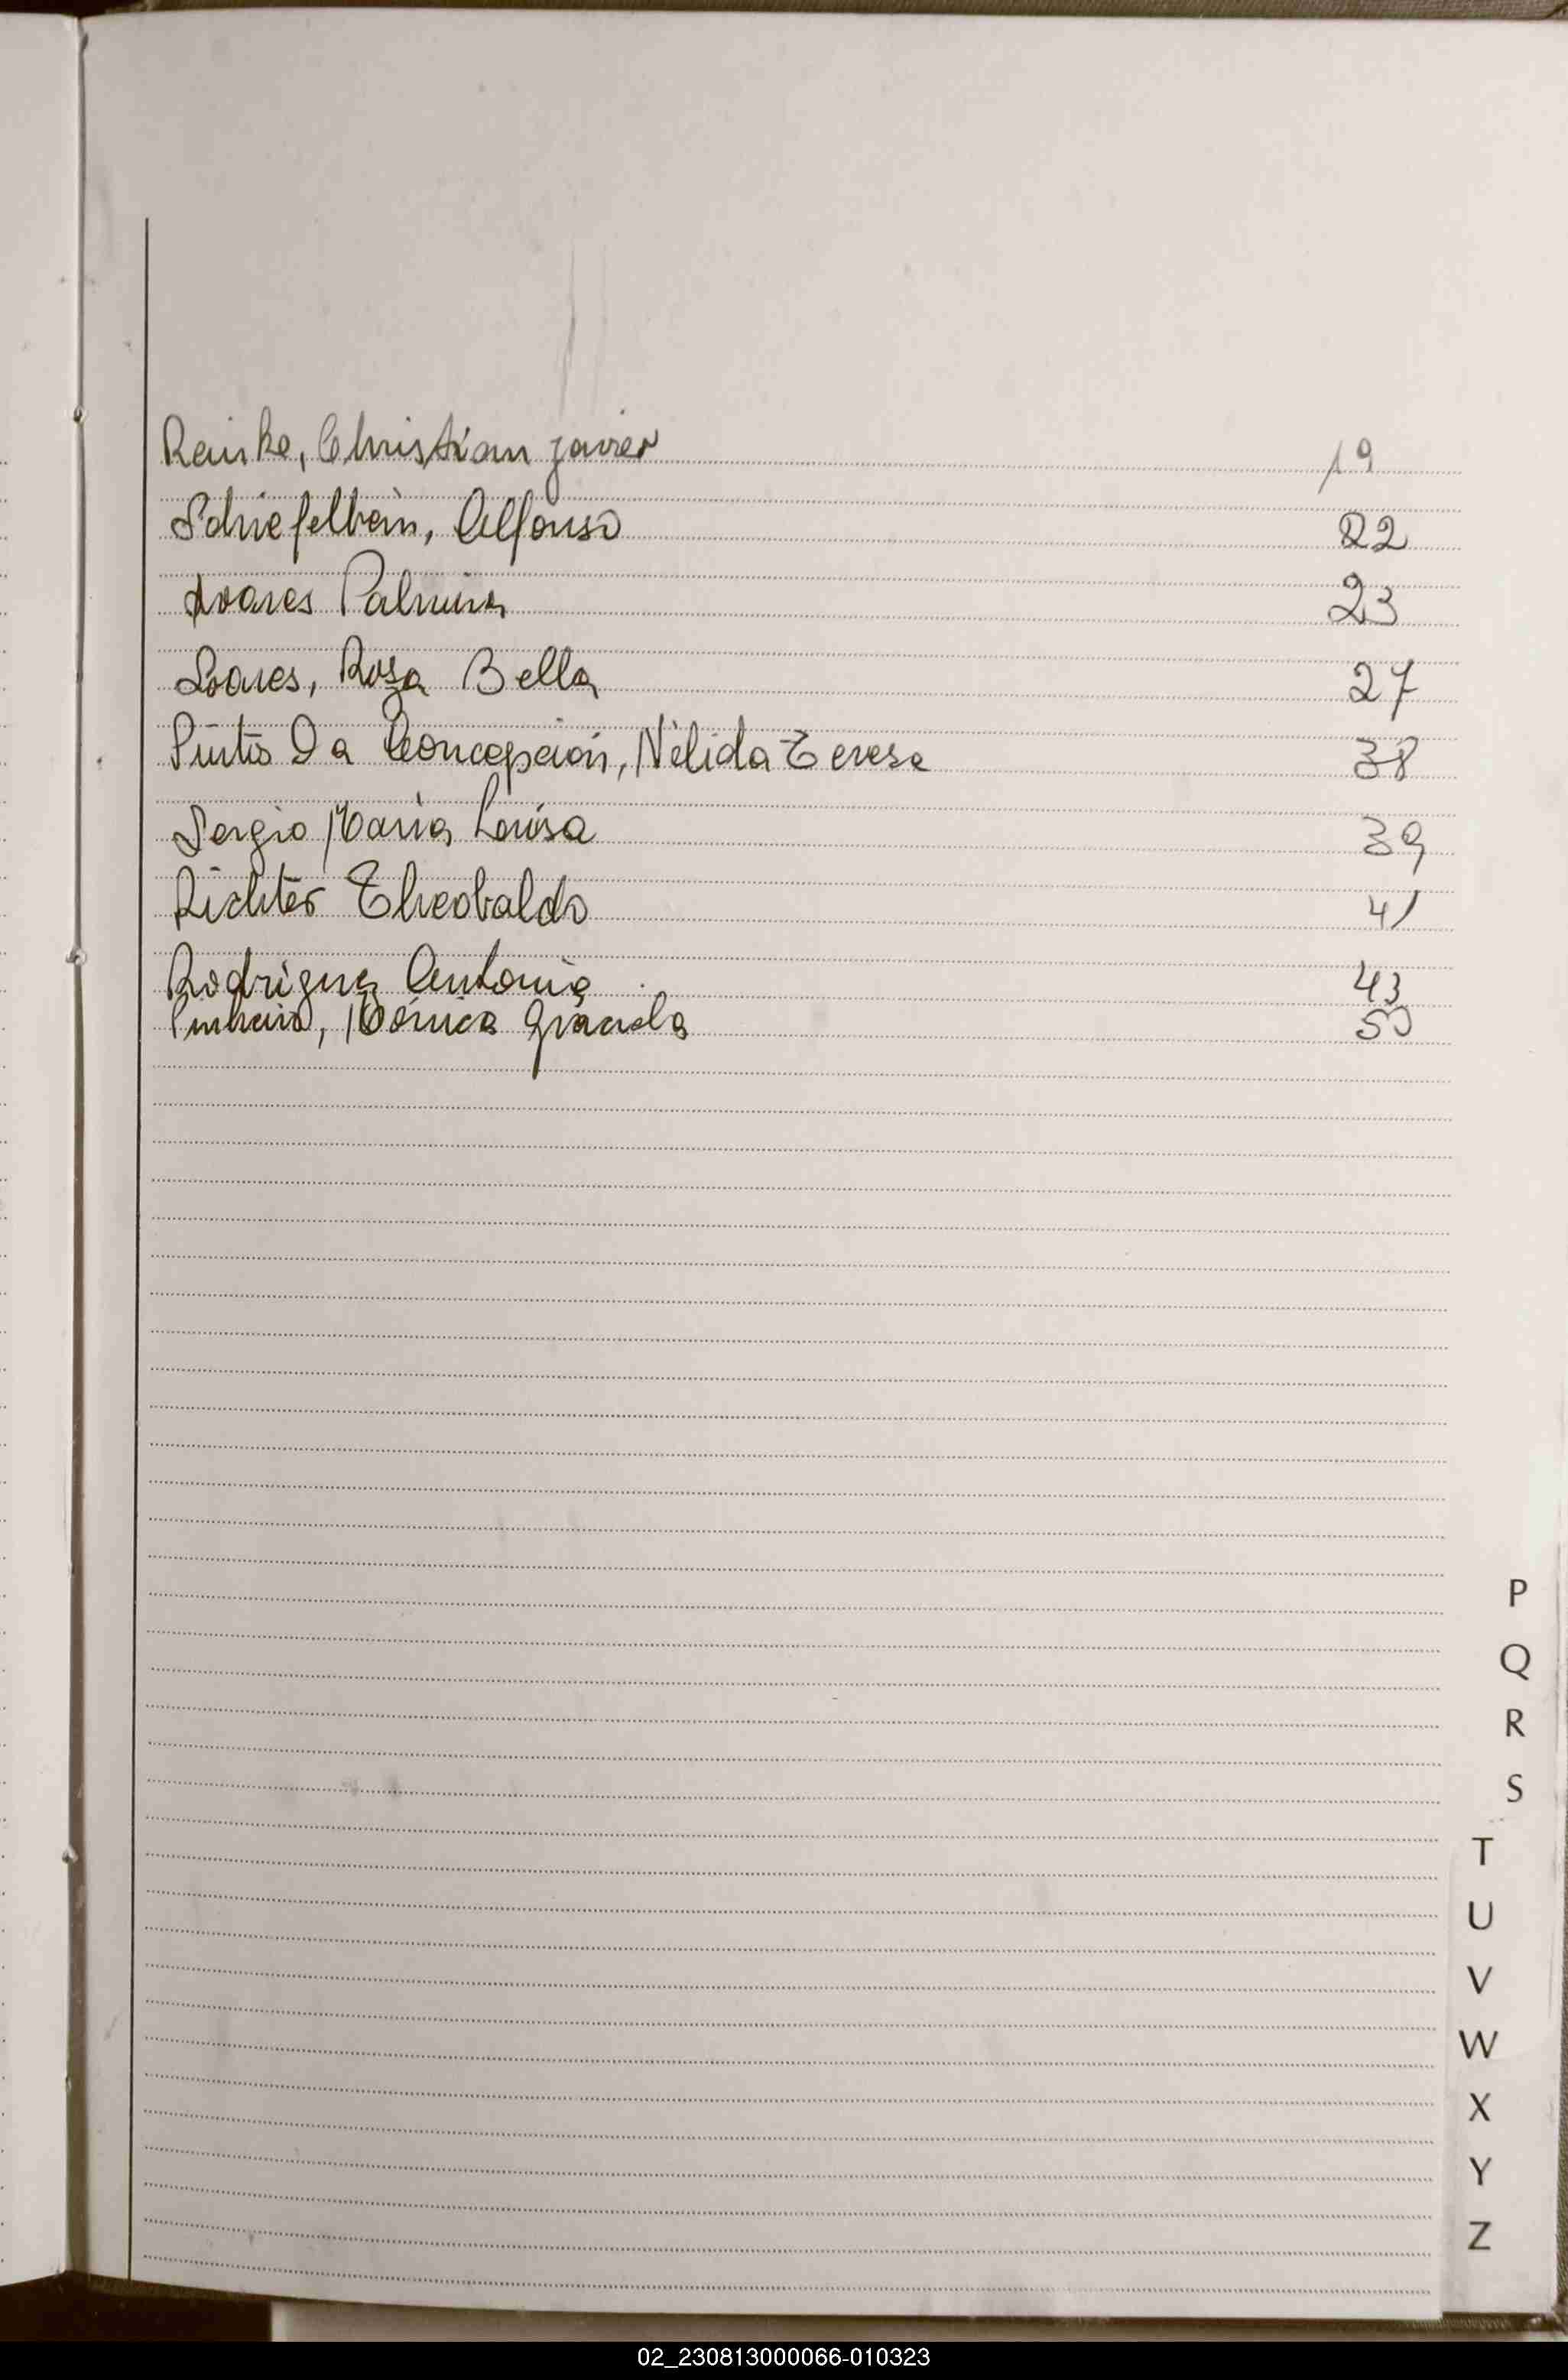 Reinke, Christian Javier 19
Schiefelbein, Alfonso 22
Soares Palmira 23
Soares, Rosa Bella 27
Pinto Da Concepción, Nélida Teresa 38
Sergio Maria Louisa 39
Richter Theobaldo 41
Rodriguez Antonia 43
Pinheiro, Mónica Graciela 50
P
Q
R
S
T
U
V
W
X
Y
Z
02_230813000066-010323